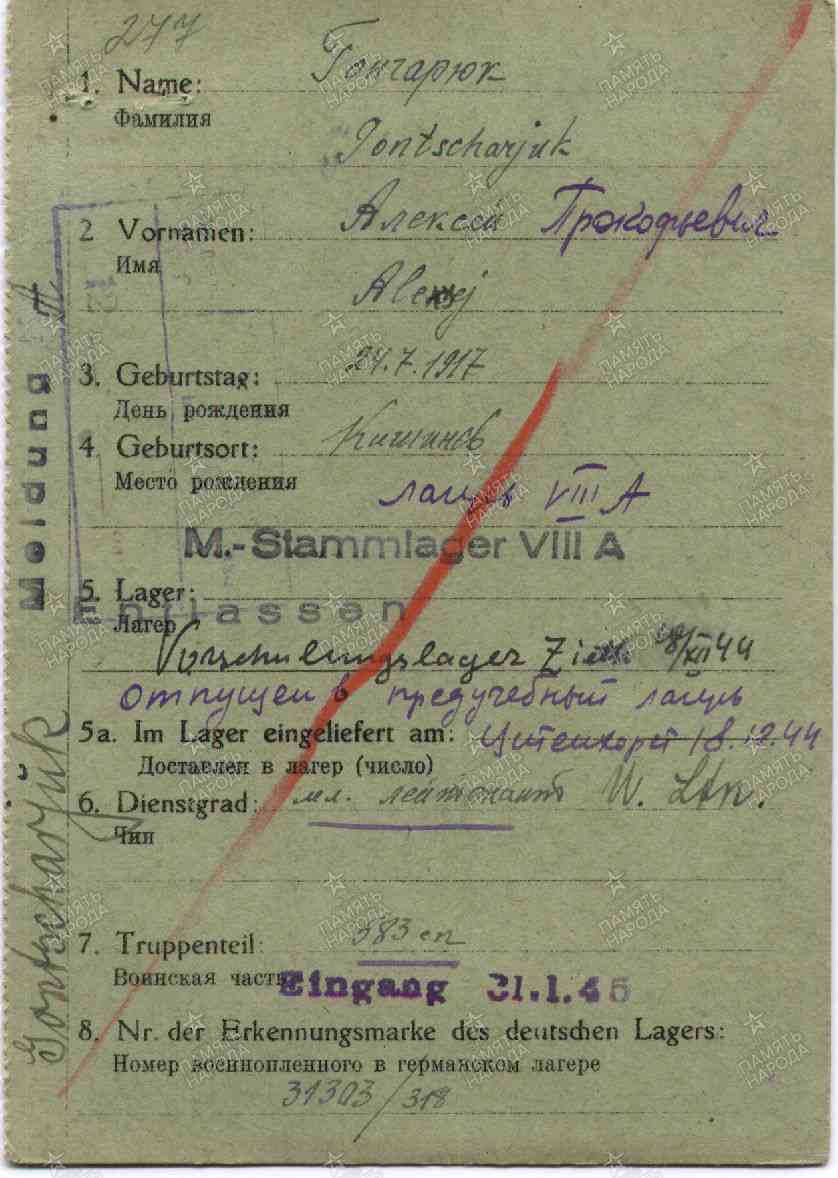 277
1. Name: Гончарюк
Фамилия
Gontscharjuk
2 Vornamen: Алексей Прокофьевич
Имя
Alexej
3. Geburtstag: 24.7.1917
День рождения
4. Geburtsort: Кишинев
Место рождения
лагерь VIII A
M.-Stammlager VIII A
5. Lager:
Entlassen
Лагерь
Vorschulungslager 18/XII 44
отпущен в предучебный лагерь
5a. Im Lager eingeliefert am: Цитенхорст 18.12.44
Доставлен в лагер (число)
6. Dienstgrad: мл. лейтонантъ U. Ltn.
Чин
7. Truppenteil: 383 сп
Воинская часть
Eingang 31.1.45
8. Nr. der Erkennungsmarke des deutschen Lagers:
Номер военнопленного в германском лагере
31303/318
Meldung A
Gontscharjuk
ПАМЯТЬ НАРОДА